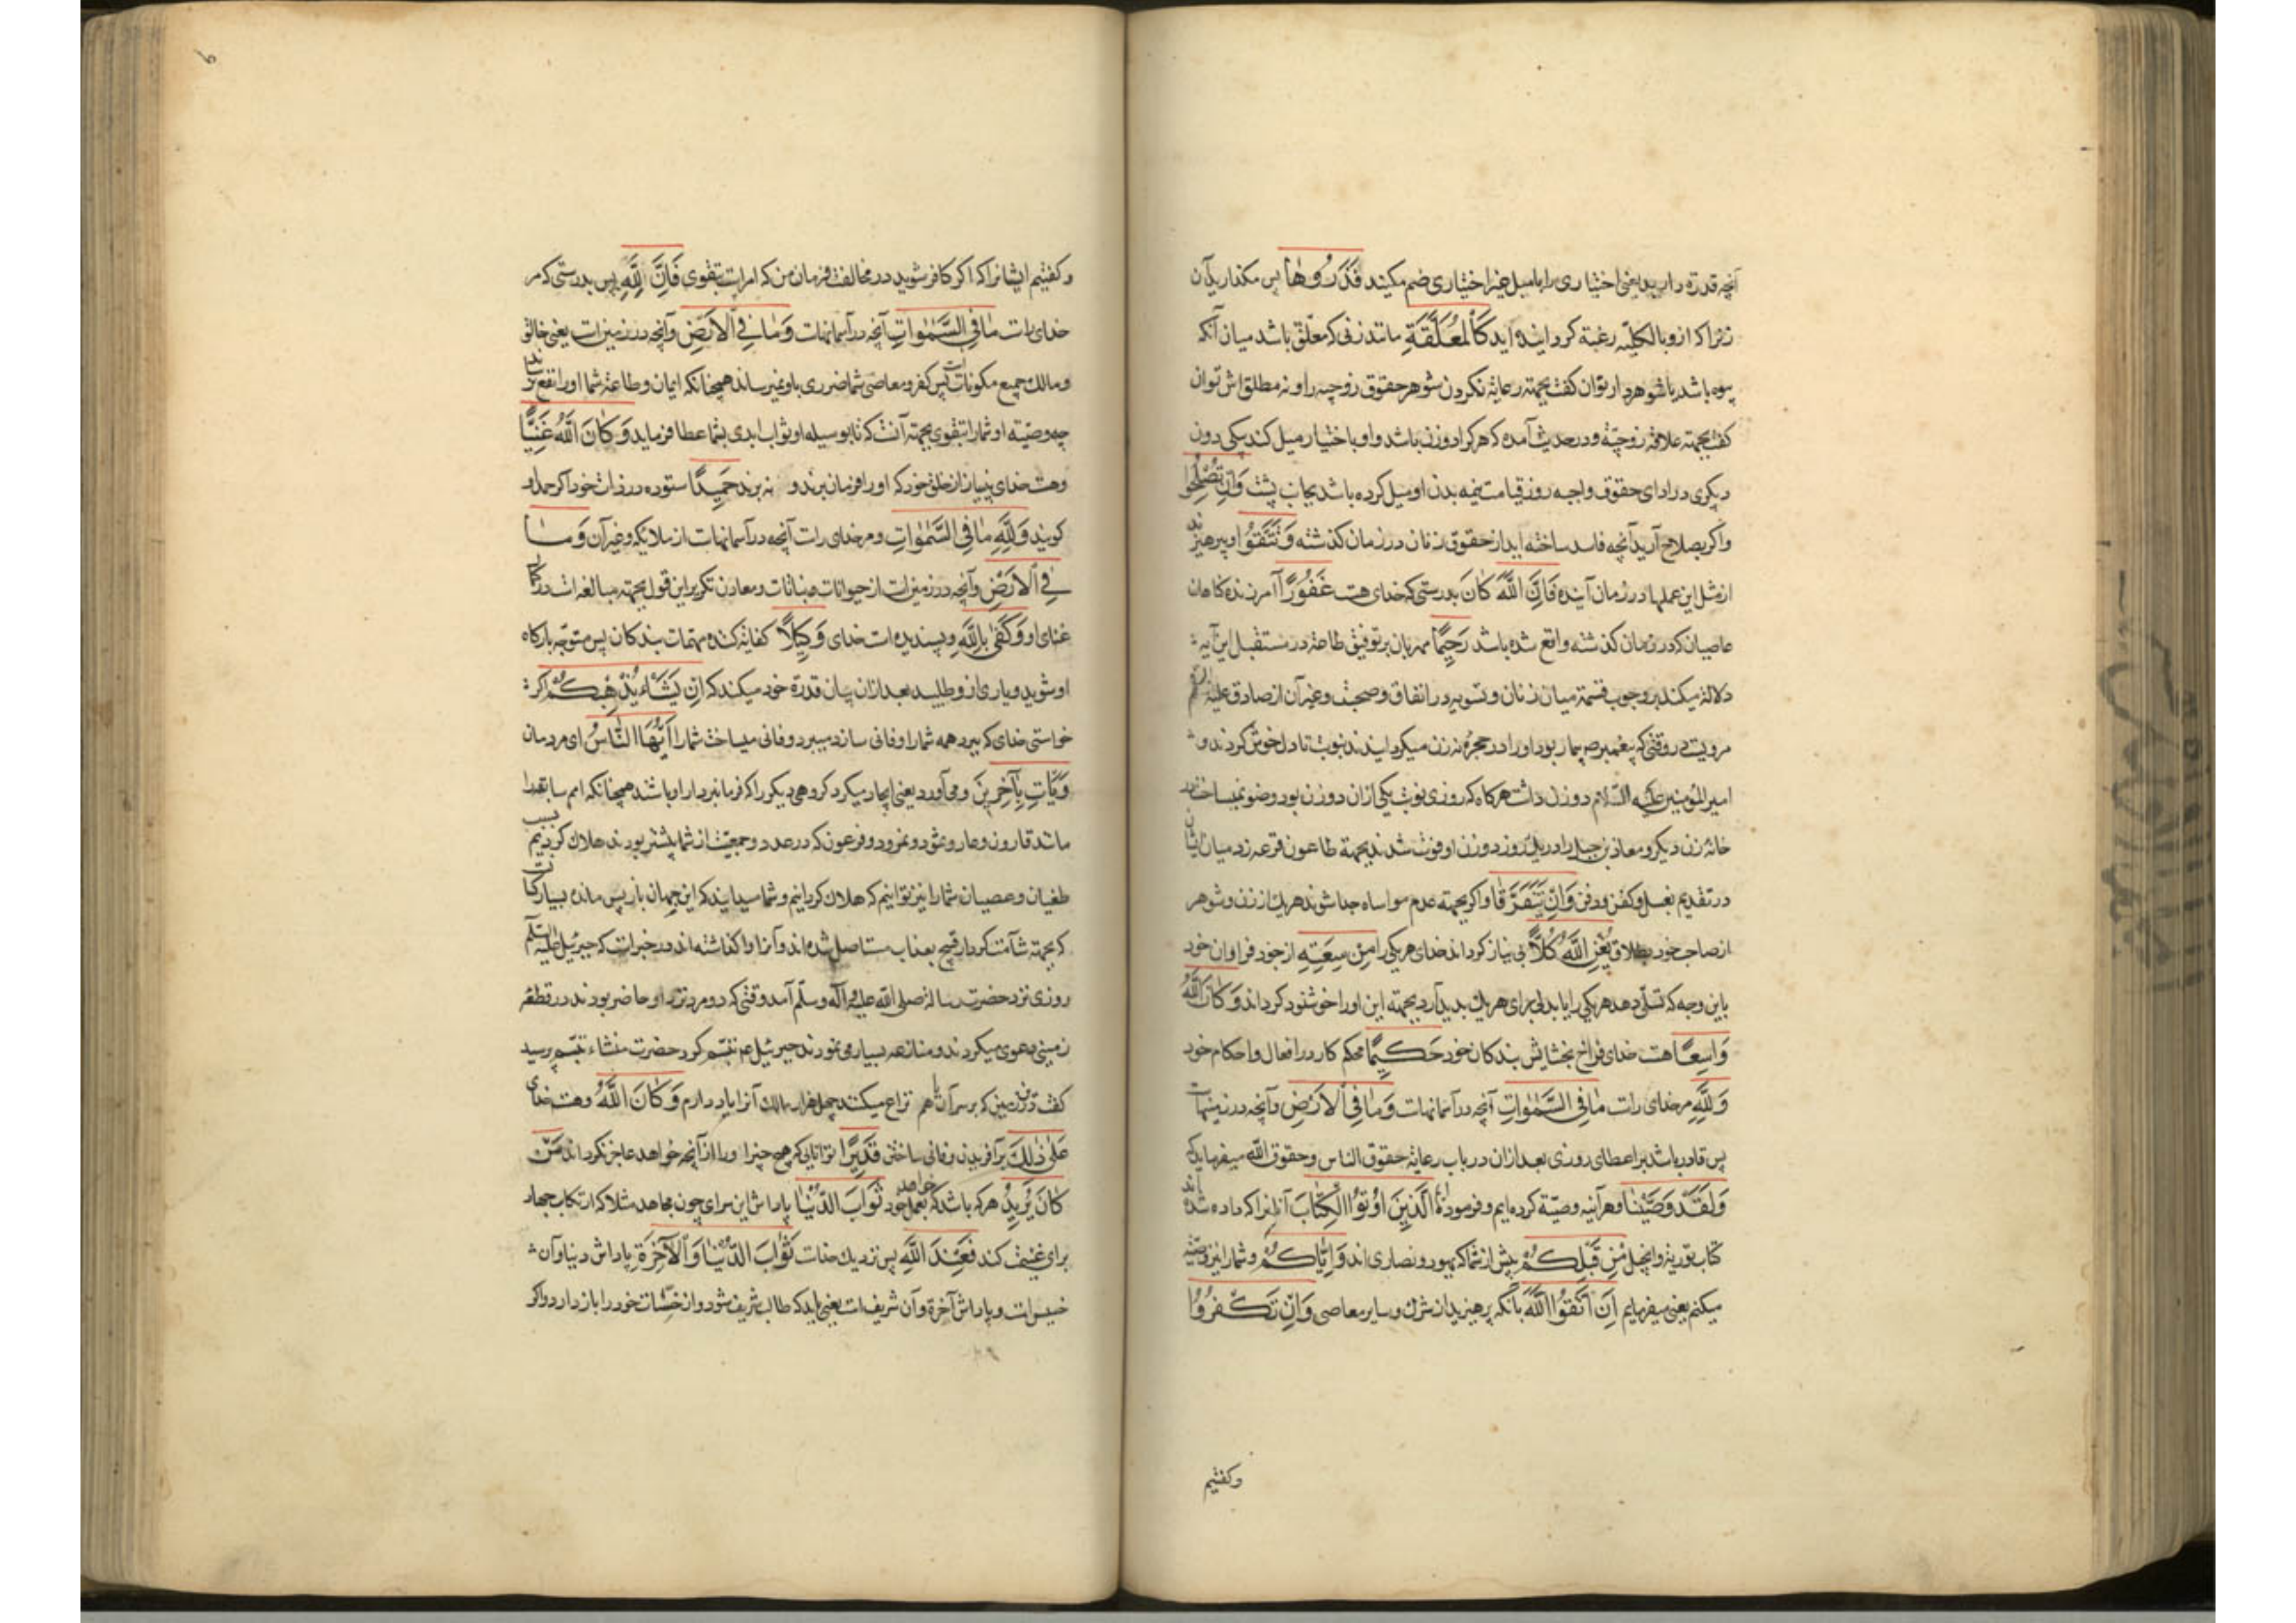 آنچه قدرة دارید یعنی اختیاری را با میل غیر اختیاری ضم مکنید فَتَذَرُوهٰا پس مکذارید آن
زنرا که ازو بالکلیّه رغبة کردانیده اید کَالْمُعَلَّقَةِ مانند زنی که معلّق باشد میان آنکه
بیوه باشد یا شوهردار نتوان کفت بجهته رعایة نکردن شوهر حقوق زوجیه را و نه مطلق اش توان
کفت بجهته علاقه زوجیّة و در حدیث آمده که هر کرا دو زن باشد و او باختیار میل کند بیکی دون
دیکری در ادای حقوق واجبه روز قیامت نیمه بدن او میل کرده باشد بجانب پشت وَاِنْ تُصْلِحُوا
و اکر بصلاح آرید آنچه فاسد ساخته اید از حقوق زنان در زمان کذشته وَتَتَّقُوا و بپرهیزید
از مثل این عملها در زمان آینده فَاِنَّ اللَّهَ کٰانَ بدرستی که خدای هست غَفُورًا آمرزنده کناهان
عاصیان که در زمان کذشته واقع شده باشد رَحِیمًا مهربان بر توفیق طاعة در مستقبل این آیه
دلالة میکند بر وجوب قسمة میان زنان و تسویه در انفاق و صحبت و غیر آن از صادق علیه السلم
مرویست در وقتی که پیغمبر ص بیمار بود او را در حجرۀ نه زن میکردانیدند بنوبت تا دلخوش کردند و
امیر المؤمنین علیه السّلام دو زن داشت هر کاه که روزی نوبت یکی ازان دو زن بود وضو نمیساخت در
خانۀ زن دیکر و معاذ بن جبل را در یک روز دو زن او فوت شدند بجهة طاعون قرعه زد میان ایشان
در تقدیم بغسل و کفن و دفن وَاِنْ یَتَفَرَّقٰا و اکر بجهته عدم مواساه جدا شوند هر یک از زن و شوهر
از صاحب خود بطلاق یُغْنِ اللَّهُ کُلّاً بی نیاز کرداند خدای هر یکی را مِنْ سِعَتِهِ از جود فراوان خود
باین وجه که تسلّی دهد هر یکی را یا بدلی برای هر یک بدید آرد بجهته این او را خوشنود کرداند وَکٰانَ اللَّهُ
وٰاسِعًا هست خدای فراخ بخشایش بندکان خود حَکِیمًا محکم کار در افعال و احکام خود
وَلِلَّهِ مر خدای راست مٰا فِی السَّمٰوٰاتِ آنچه در آسمانهاست وَمٰا فِی الْاَرْضِ و آنچه در زمینهاست
پس قادر باشد بر اعطای روزی بعد ازان در باب رعایة حقوق الناس و حقوق اللّه میفرماید که
وَلَقَدْ وَصَّیْنٰا و هر آینه وصیّة کرده ایم و فرموده الَّذِینَ اُوتُوا الْکِتٰابَ آنانرا که داده شده اند
کتاب توریة و انجیل مِنْ قَبْلِکُمْ پیش از شما که یهود و نصاری اند وَاِیّٰاکُمْ و شما را نیز وصیّة
میکنم یعنی میفرمایم اَنِ اتَّقُوا اللَّهَ بآنکه پرهیزید از شرک و سایر معاصی وَاِنْ تَکْفُرُوا
وکفتیم
و کفتیم ایشانرا که اکر کافر شوید در مخالفت فرمان من که امرست بتقوی فَاِنَّ لِلَّهِ پس بدرستی که مر
خدای راست مٰا فِی السَّمٰوٰاتِ آنچه در آسمانهاست وَمٰا فِی الْاَرْضِ و آنچه در زمین است یعنی خالق
و مالک جمیع مکونات است پس کفر و معاصی شما ضرری باو نمیرساند همچنانکه ایمان و طاعة شما او را نفع
چه وصیّته او شما را بتقوی بجهته آنست که تا بوسیله او ثواب ابدی بشما عطا فرماید وَکٰانَ اللَّهُ غَنِیًّا
و هست خدای بی نیاز از خلق خود که او را فرمان برند و نه برند حَمِیدًا ستوده در ذات خود اکر حمد او
کویند وَلِلَّهِ مٰا فِی السَّمٰوٰاتِ و مر خدای راست آنچه در آسمانهاست از ملایکه و غیر آن وَمٰا
فِی الْاَرْضِ و آنچه در زمین است از حیوانات و نباتات و معادن تکریر این قول بجهته مبالغه است در کمال
غنای او وَکَفٰی بِاللَّهِ و بسندیده است خدای وَکِیلاً کفایة کننده مهمّات بندکان پس متوجّه بارکاه
او شوید و یاری ازو طلبید بعد ازان بیان قدرة خود میکند که اِنْ یَشَأْ یُذْهِبْکُمْ اکر
خواستی خدای که ببرد همه شما را و فانی سازد میبرد و فانی میساخت شما را اَیُّهَا النّٰاسُ ای مردمان
وَیَاْتِ بِآخَرِینَ و می آورد یعنی ایجاد میکرد کروهی دیکر را که فرمانبردار او باشند همچنانکه امم سابقه را
مانند قارون و عاد و ثمود و نمرود و فرعون که در عدد و جمعیّت از شما بیشتر بودند هلاک کردیم بسبب
طغیان و عصیان شما را نیز توانیم که هلاک کردانیم و شما میدانید که این جهان باز پس مانده بسیار
که بجهته شآمت کردار قبیح بعذاب مستاصل شده اند و آنرا واکذاشته اند در خبر است که جبرئیل علیه السلم
روزی نزد حضرت رسالة صلی اللّه علیه و آله و سلّم آمد وقتی که دو مرد نزد او حاضر بودند در قطعه
زمینی دعوی میکردند و منازعه بسیار می نمودند جبرئیل عم تبسّم کرد حضرت منشاء تبسّم پرسید
کفت درین زمین که بر سر آن با هم نزاع میکنند چهل هزار مالک آنرا یاد دارم وَکٰانَ اللَّهُ و هست خدای
عَلٰی ذٰلِکَ بر آفریدن و فانی ساختن قَدِیرًا توانایی که هیچ چیز او را از آنچه خواهد عاجز نکرداند مَنْ
کٰانَ یُرِیدُ هر که باشد که خواهد بعمل خود ثَوٰابَ الدُّنْیٰا پاداش این سرای چون مجاهد مثلا که ارتکاب جهاد
برای غنیمت کند فَعِنْدَ اللَّهِ پس نزدیک خداست ثَوٰابُ الدُّنْیٰا وَالْآخِرَةِ پاداش دنیا و آن
خسیس است و پاداش آخرة و آن شریف است یعنی باید که طالب شریف شود و از خسّت خود را باز دارد و اکر